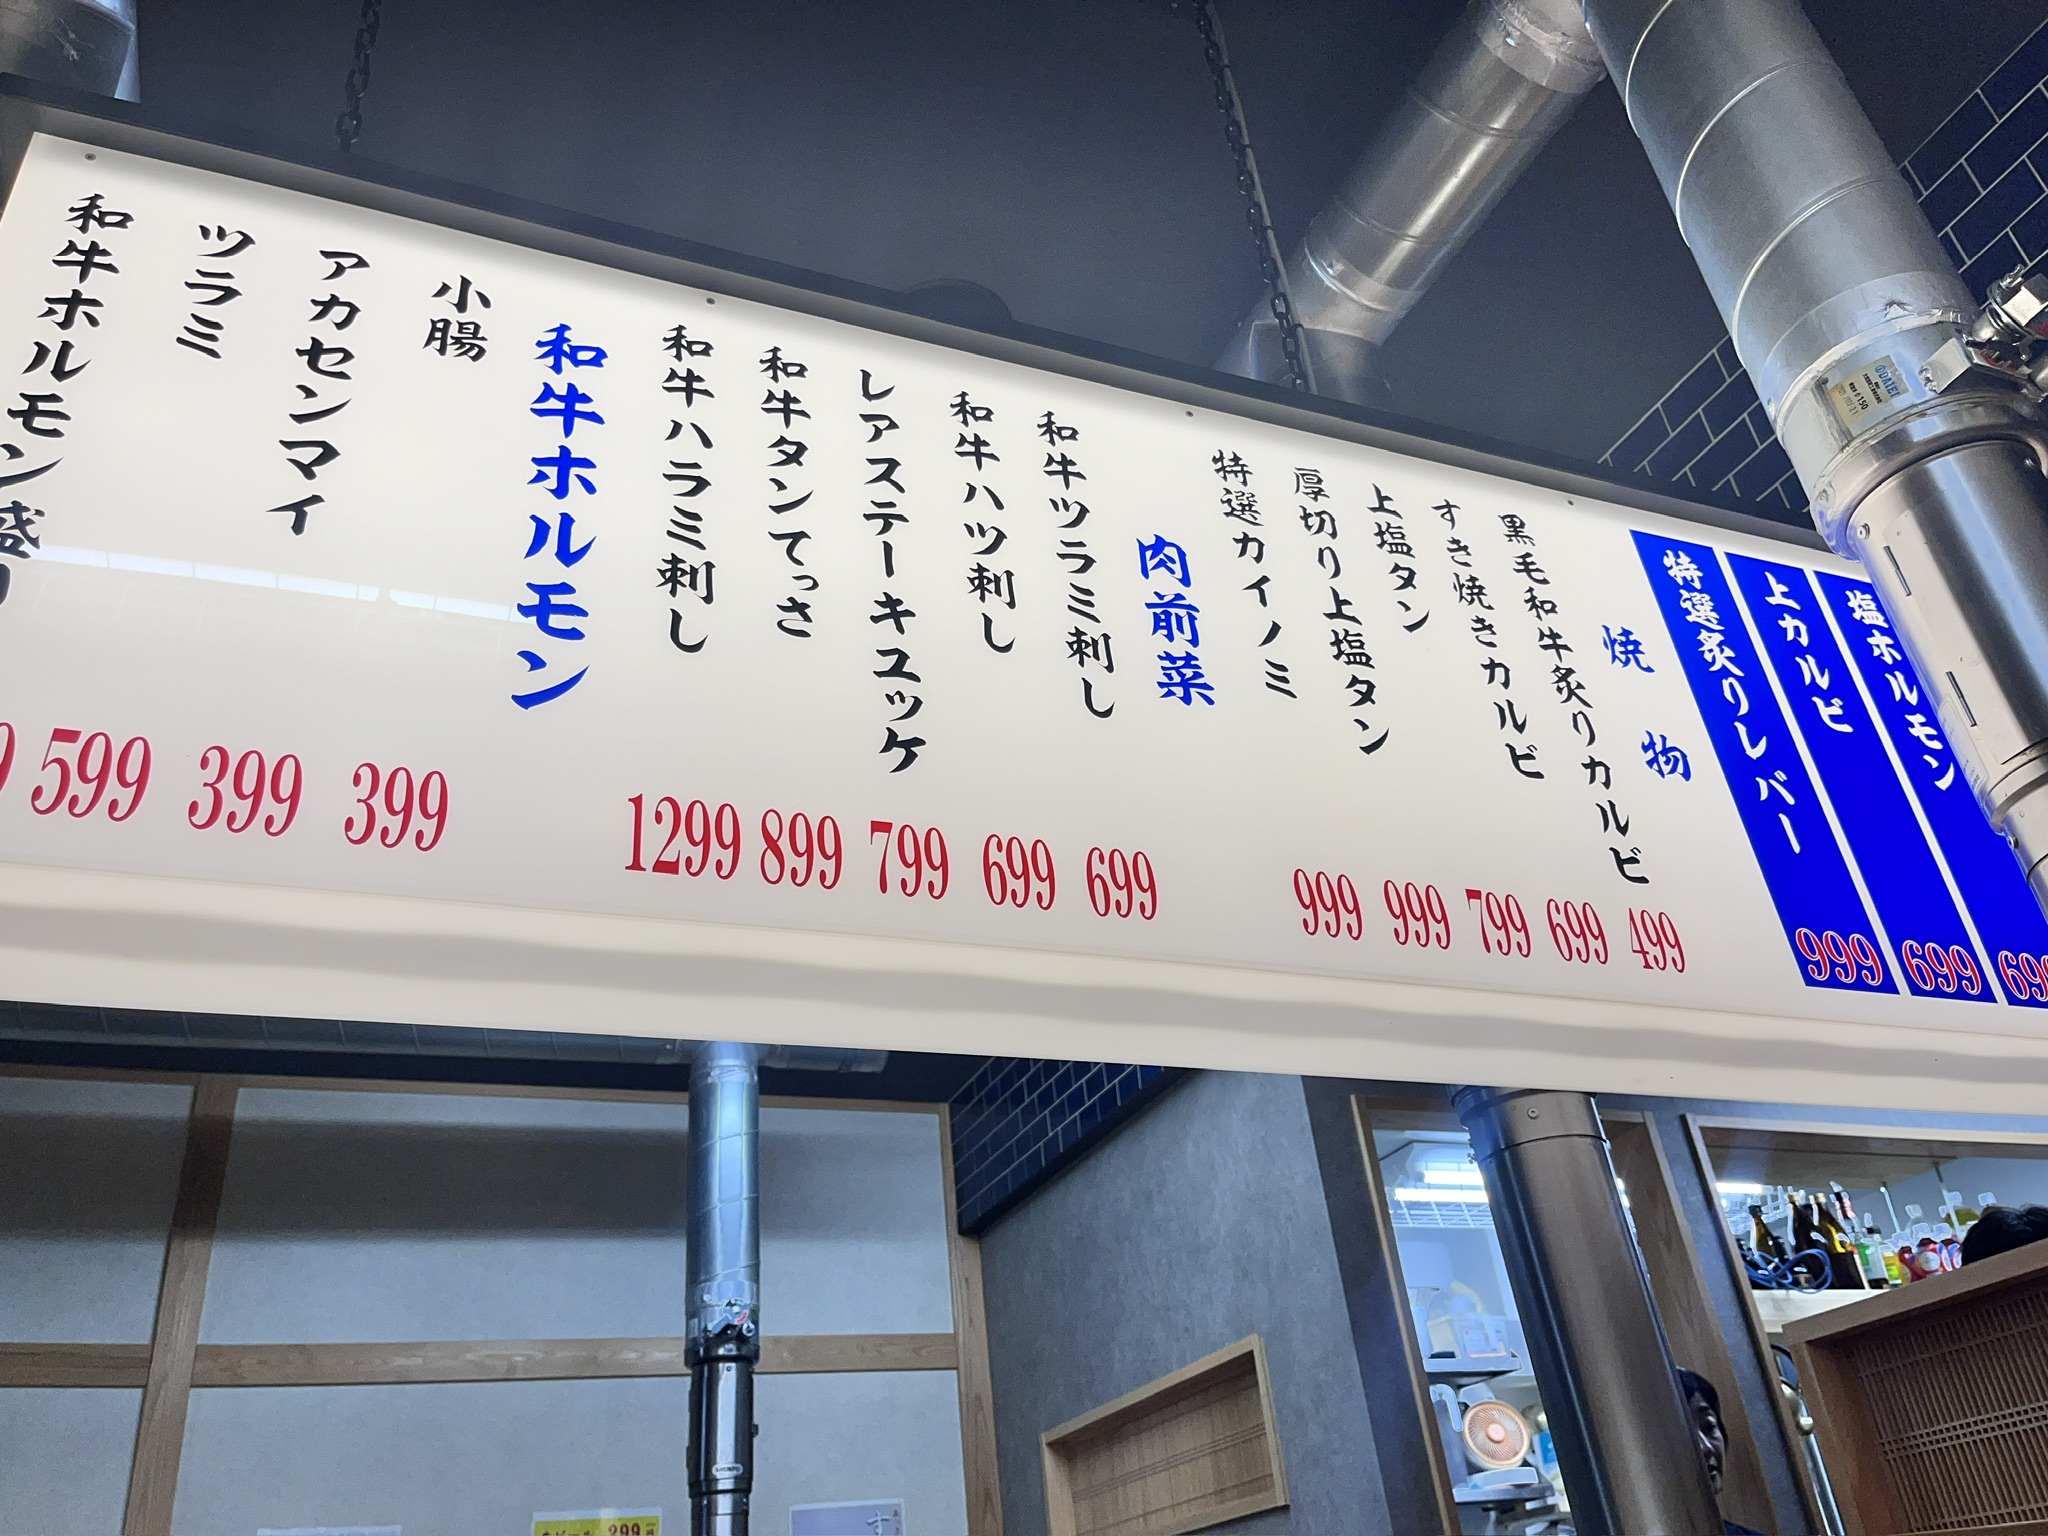 塩ホルモン
69
上カルビ
699
特選炙りレバー
999
焼物
黒毛和牛炙りカルビ
499
すき焼きカルビ
699
上塩タン
799
厚切り上塩タン
999
特選カイノミ
999
肉前菜
和牛ツラミ刺し
699
和牛ハツ刺し
699
レアステーキユッケ
799
和牛タンてっさ
899
和牛ハラミ刺し
1299
和牛ホルモン
小腸
399
アカセンマイ
399
ツラミ
599
和牛ホルモン盛り
9
DAIEI
150
299
す